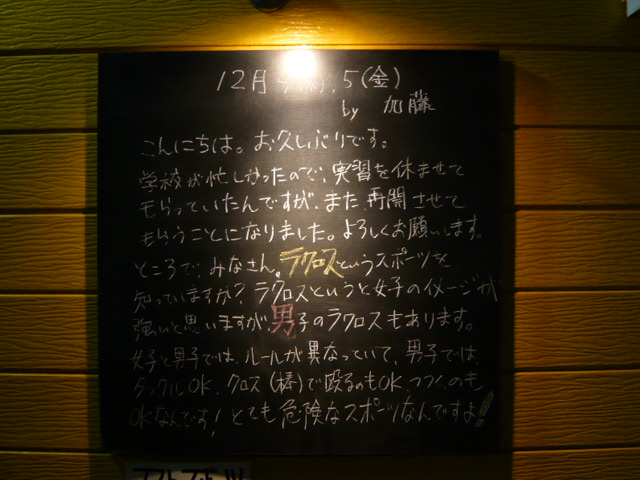 12月4(木), 5(金)
by 加藤
こんにちは。お久しぶりです。
学校が忙しかったので、実習を休ませて
もらっていたんですが、また再開させて
もらうことになりました。よろしくお願いします。
ところで、みなさん。ラクロスというスポーツを
知っていますか?ラクロスというと女子のイメージが
強いと思いますが男子のラクロスもあります。
女子と男子では、ルールが異なっていて、男子では
タックルOK、クロス(棒)で殴るのもOK、つつくのも、
OKなんです!とても危険なスポーツなんですよ!!